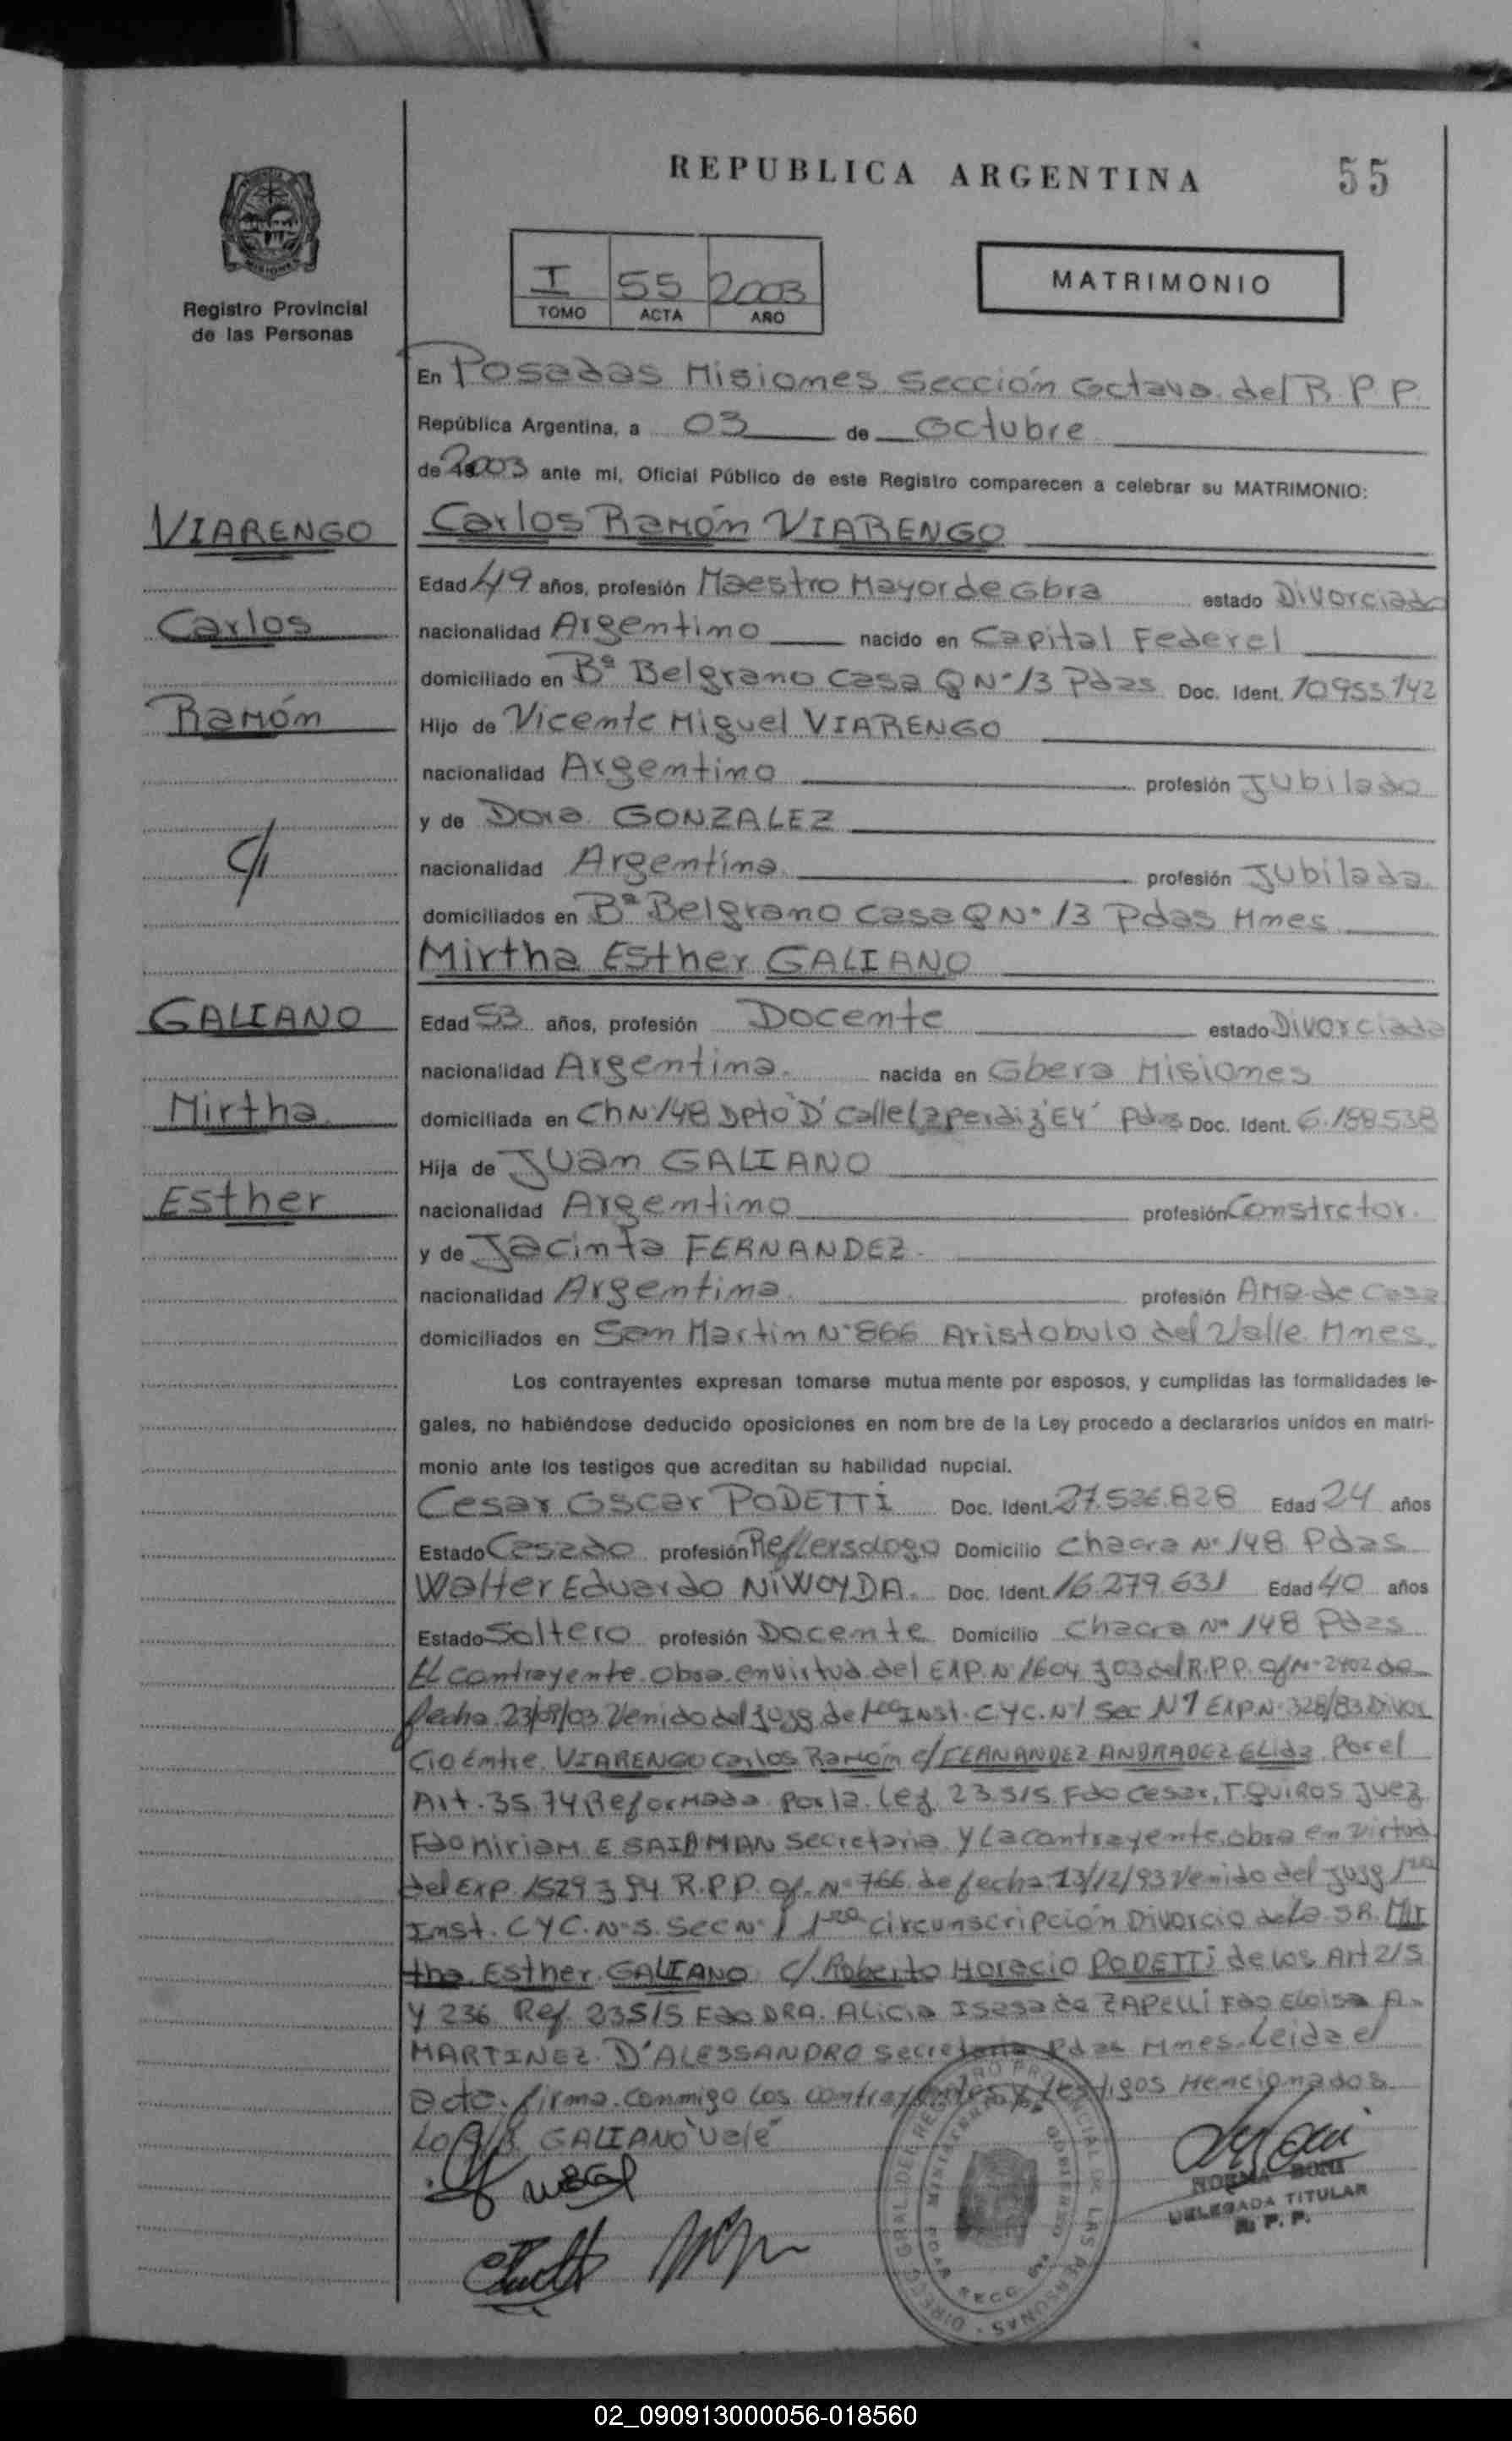 REPUBLICA ARGENTINA
55
MISIONES
Registro Provincial
de las Personas
I 55 2003
TOMO ACTA AÑO
MATRIMONIO
En Posadas Misiones Sección Octava del R.P.P.
República Argentina, a 03 de Octubre
de 2003 ante mi, Oficial Público de este Registro comparecen a celebrar su MATRIMONIO:
VIARENGO
Carlos
Ramón
c/
GALIANO
Mirtha
Esther
Carlos Ramón VIARENGO
Edad 49 años, profesión Maestro Mayor de Obra estado Divorciado
nacionalidad Argentino nacido en Capital Federal
domiciliado en Bº Belgrano Casa Q Nº 13 Pdas Doc. Ident. 10955742
Hijo de Vicente Miguel VIARENGO
nacionalidad Argentino profesión Jubilado
y de Dora GONZALEZ
nacionalidad Argentina profesión Jubilada
domiciliados en Bº Belgrano Casa Q Nº 13 Pdas Mnes
Mirtha Esther GALIANO
Edad 53 años, profesión Docente estado Divorciada
nacionalidad Argentina nacida en Obera Misiones
domiciliada en Ch Nº 148 Dpto "D" Calle La perdiz "E4" Pdas Doc. Ident. 6.188538
Hija de Juan GALIANO
nacionalidad Argentino profesión Constrctor
y de Jacinta FERNANDEZ
nacionalidad Argentina profesión Ama de Casa
domiciliados en San Martin Nº 866 Aristobulo del Valle Mnes
Los contrayentes expresan tomarse mutua mente por esposos, y cumplidas las formalidades le-
gales, no habiéndose deducido oposiciones en nom bre de la Ley procedo a declararlos unidos en matri-
monio ante los testigos que acreditan su habilidad nupcial.
Cesar Oscar PODETTI Doc. Ident. 27.526.828 Edad 24 años
Estado Casado profesión Domicilio Chacra Nº 148 Pdas
Walter Eduardo NIWOYDA Doc. Ident. 16.279.631 Edad 40 años
Estado Soltero profesión Docente Domicilio Chacra Nº 148 Pdas
El contrayente obra en virtud del EXP. Nº 1604 J 03 del R.P.P. of Nº 2402 de
fecha 23/09/03 Venido del Juzg de 1ra INST. C Y C. Nº 1 Sec Nº 1 EXP Nº 328/83 Divor
cio Entre VIARENGO Carlos Ramón c/ FERNANDEZ ANDRADEZ Elida Por el
Art. 35.74 Reformada por la Ley 23.515 Fdo Cesar T. QUIROS Juez
Fdo Miriam E SAIDMAN Secretaria Y La contrayente obra en virtud
del Exp. 1529 J 94 R.P.P. of. Nº 766 de fecha 13/12/93 Venido del Juzg 1ra
Inst. C Y C. Nº 5. Sec Nº 1 1ra circunscripción Divorcio de la SR. Mir
tha Esther GALIANO c/ Roberto Horacio PODETTI de los Art 215
Y 236 Ref. 23515 Fdo DRA. Alicia Isasa de ZAPELLI Fdo Eloisa A.
MARTINEZ D'ALESSANDRO Secretaria Pdas Mnes. Leida el
acta firma conmigo los contrayentes y testigos Mencionados
Lo S/B GALIANO "Vale"
DIREC. GRAL. DEL REGISTRO PROVINCIAL DE LAS PERSONAS
MINISTERIO DE GOBIERNO
SECC. 8va
NORMA BONI
DELEGADA TITULAR
R.P.P.
02_090913000056-018560